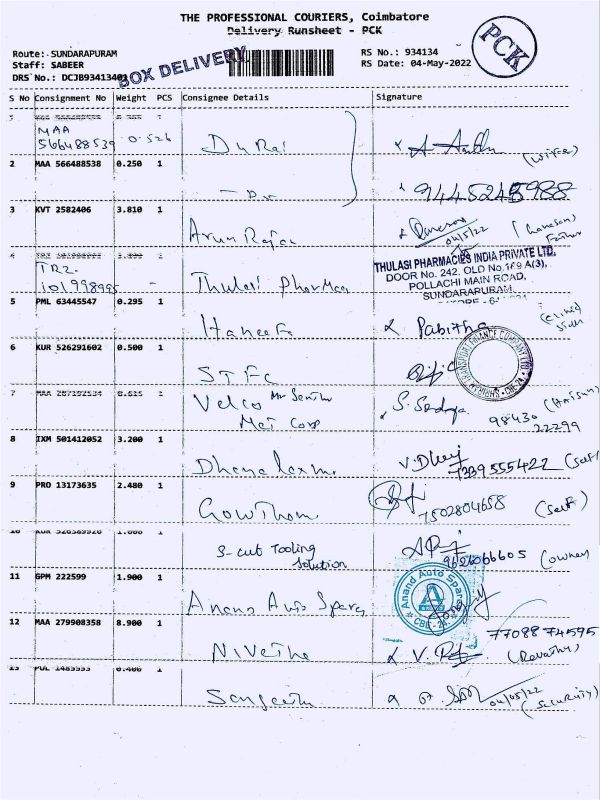 THE PROFESSIONAL COURIERS, Coimbatore
Delivery Runsheet - PCK
PCK
Route: SUNDARAPURAM
Staff: SABEER
DRS No.: DCJB93413402
BOX DELIVERY
RS No.: 934134
RS Date: 04-May-2022
S No Consignment No Weight PCS Consignee Details Signature
MAA 566488539 0.526 Durai
(wife)
2 MAA 566488538 0.250 1
9445245988
3 KVT 2582406 3.810 1
Arun Rajai
04/5/22
Father
TRZ. 101998995 Thulasi Pharmaa
THULASI PHARMACIES INDIA PRIVATE LTD.
DOOR No. 242, OLD No.169 A(3),
POLLACHI MAIN ROAD,
SUNDARAPURAM,
5 PML 63445547 0.295 1
Haneefa
Pabitha
6 KUR 526291602 0.500 1
STFC
TRANSPORT FINANCE COMPANY LTD
CBE-24
7 MAA 287192534 0.615 1
Velco Mr Senthil
Met Corp
S. Sandya
98430
22299
8 IXM 501412052 3.200 1
Dhanalaxmi
V. Dhuj
7339555422 (self)
9 PRO 13173635 2.480 1
Gowtham
7502804658 (self)
10 1.000 1
S-cut Tooling
Solution
9626066605 (owner)
11 GPM 222599 1.900 1
Anand Auto Spares
Anand Auto Spares
CBE-24.
12 MAA 279908358 8.900 1
Nivetha
7708874595
(Revathy)
13 POL 1483553 0.400 1
Sangeeth
04/05/22
(Security)